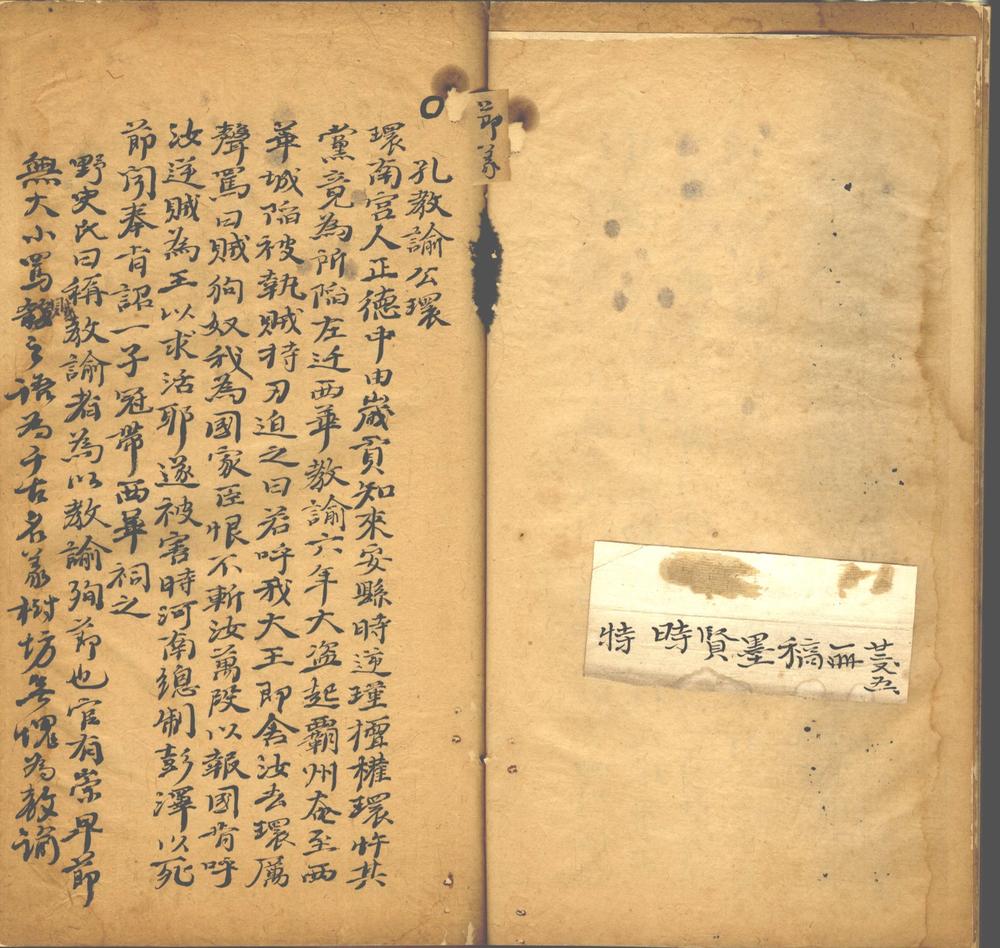 特 時賢墨稿冊
節義
孔教諭公環
環南宮人正德中由歲貢知來安縣時逆瑾擅權環忤其
黨竟為所陷左迁西華教諭六年大盗起霸州奄至西
華城陷被執賊持刃迫之曰若呼我大王即舍汝去環厲
聲罵曰賊狗奴我為國家臣恨不斬汝萬段以報國肯呼
汝逆賊為王以求活耶遂被害時河南總制彭澤以死
節闻奉旨詔一子冠帶西華祠之
野史氏曰稱教諭者為以教諭殉節也官有崇卑節
無大小罵賊之語為千古名義樹坊無愧為教諭